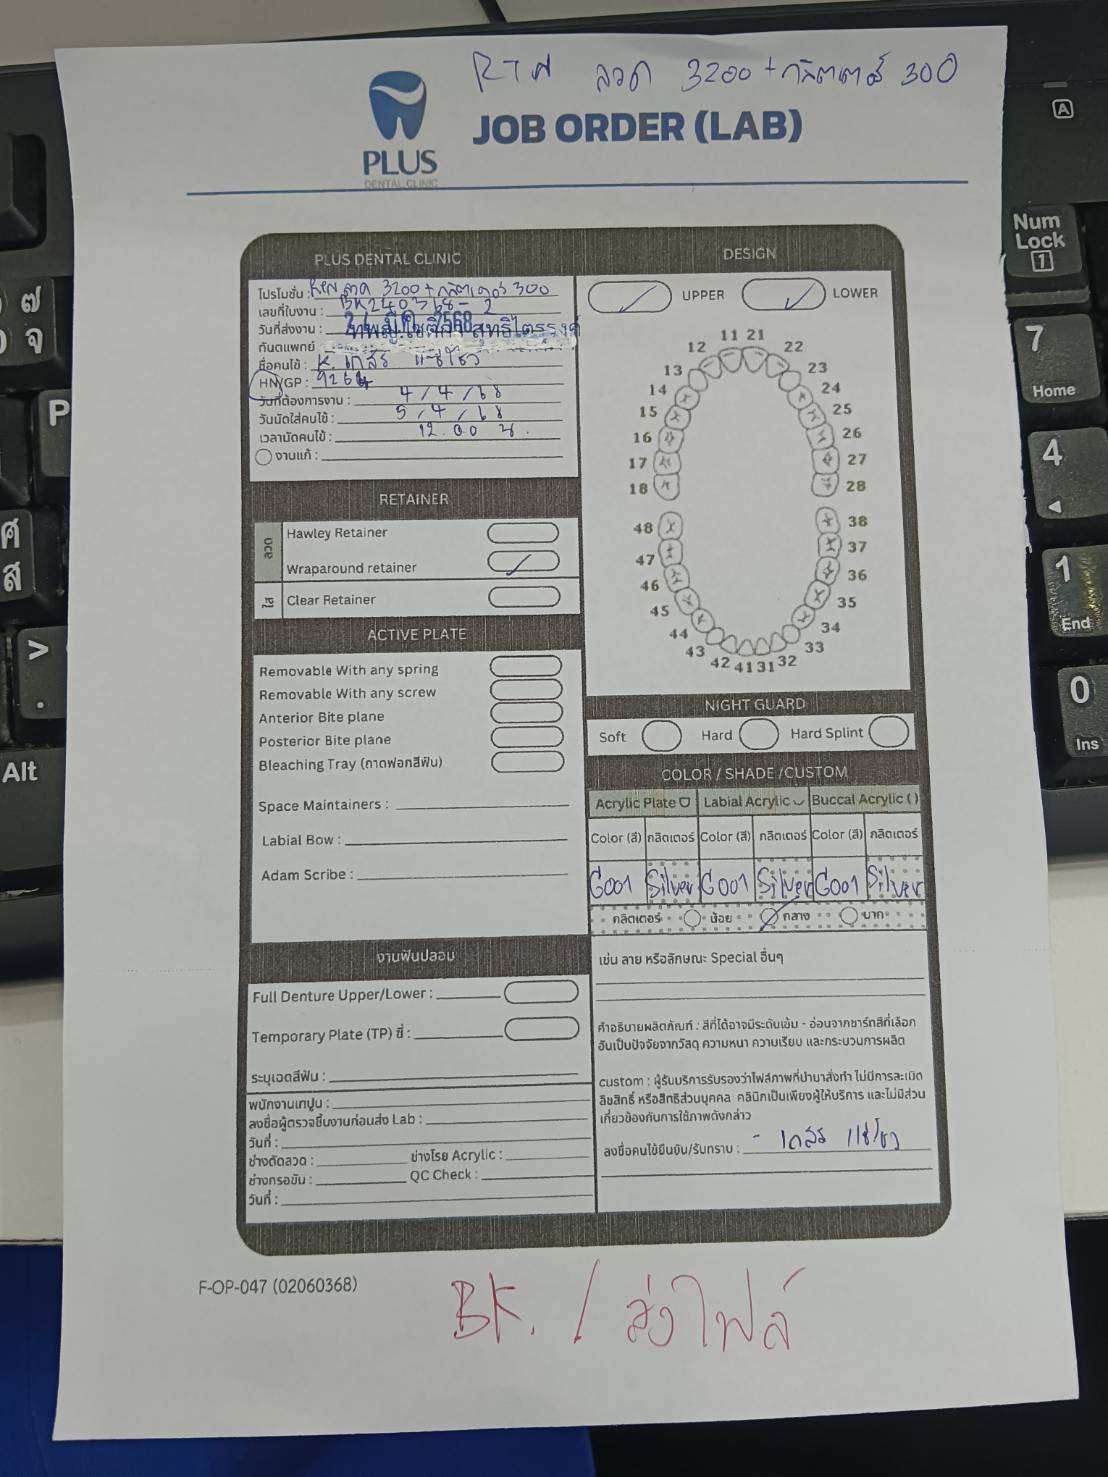 RTN ลวด 3200 + กลิตเตอร์ 300
PLUS
DENTAL CLINIC
JOB ORDER (LAB)
PLUS DENTAL CLINIC
โปรโมชั่น : RTN ลวด 3200 + กลิตเตอร์ 300
เลขที่ใบงาน : BK240368-2
วันที่ส่งงาน :
ทันตแพทย์ :
ชื่อคนไข้ : K. เกสร แซ่โซว
HN/GP : 9264
วันที่ต้องการงาน : 4/4/68
วันนัดใส่คนไข้ : 5/4/68
เวลานัดคนไข้ : 12.00 น.
งานแก้ :
RETAINER
ลวด
Hawley Retainer
Wraparound retainer
ใส
Clear Retainer
ACTIVE PLATE
Removable With any spring
Removable With any screw
Anterior Bite plane
Posterior Bite plane
Bleaching Tray (ถาดฟอกสีฟัน)
Space Maintainers :
Labial Bow :
Adam Scribe :
งานฟันปลอม
Full Denture Upper/Lower :
Temporary Plate (TP) ซี่ :
ระบุเฉดสีฟัน :
พนักงานเทปูน :
ลงชื่อผู้ตรวจชิ้นงานก่อนส่ง Lab :
วันที่ :
ช่างดัดลวด : ช่างโรย Acrylic :
ช่างกรอขัน : QC Check :
วันที่ :
DESIGN
UPPER LOWER
11 21
12 22
13 23
14 24
15 25
16 26
17 27
18 28
48 38
47 37
46 36
45 35
44 34
43 33
42 41 31 32
NIGHT GUARD
Soft Hard Hard Splint
COLOR / SHADE /CUSTOM
Acrylic Plate Labial Acrylic Buccal Acrylic ( )
Color (สี) กลิตเตอร์ Color (สี) กลิตเตอร์ Color (สี) กลิตเตอร์
G001 Silver G001 Silver G001 Silver
กลิตเตอร์ น้อย กลาง มาก
เช่น ลาย หรือลักษณะ Special อื่นๆ
คำอธิบายผลิตภัณฑ์ : สีที่ได้อาจมีระดับเข้ม - อ่อนจากชาร์ทสีที่เลือก
อันเป็นปัจจัยจากวัสดุ ความหนา ความเรียบ และกระบวนการผลิต
custom : ผู้รับบริการรับรองว่าไฟล์ภาพที่นำมาสั่งทำ ไม่มีการละเมิด
ลิขสิทธิ์ หรือสิทธิส่วนบุคคล คลินิกเป็นเพียงผู้ให้บริการ และไม่มีส่วน
เกี่ยวข้องกับการใช้ภาพดังกล่าว
ลงชื่อคนไข้ยืนยัน/รับทราบ : - เกสร แซ่โซว
F-OP-047 (02060368)
BK. / ส่งไฟล์
A
Num
Lock
1
7
Home
4
1
End
0
Ins
P
Alt
ศ
ส
>
.
จ